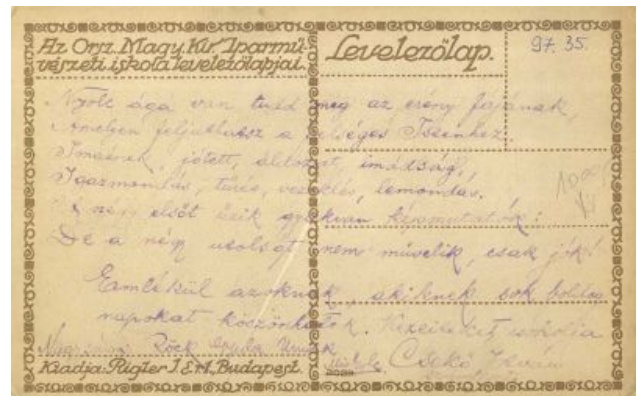 Az Orsz. Magy. Kir. Iparmű-
vészeti iskola levelezőlapjai.
Levelezőlap.
97. 35.
Nyolc ága van tudd meg az erény fájának,
Amelyen feljuthatsz a felséges Istenhez.
jótett, áldozat, imádság,
Igazmondás, tűrés, vezeklés, lemondás.
A négy elsőt űzik gyakran képmutatók:
De a négy utolsót nem művelik, csak jók!
Emlékül azoknak, akiknek sok boldog
napokat köszönhetek. Kezeiket csókolja
Röck Gyula
Csekő István
1000
Kiadja: Rigler J. E. r.t. Budapest.